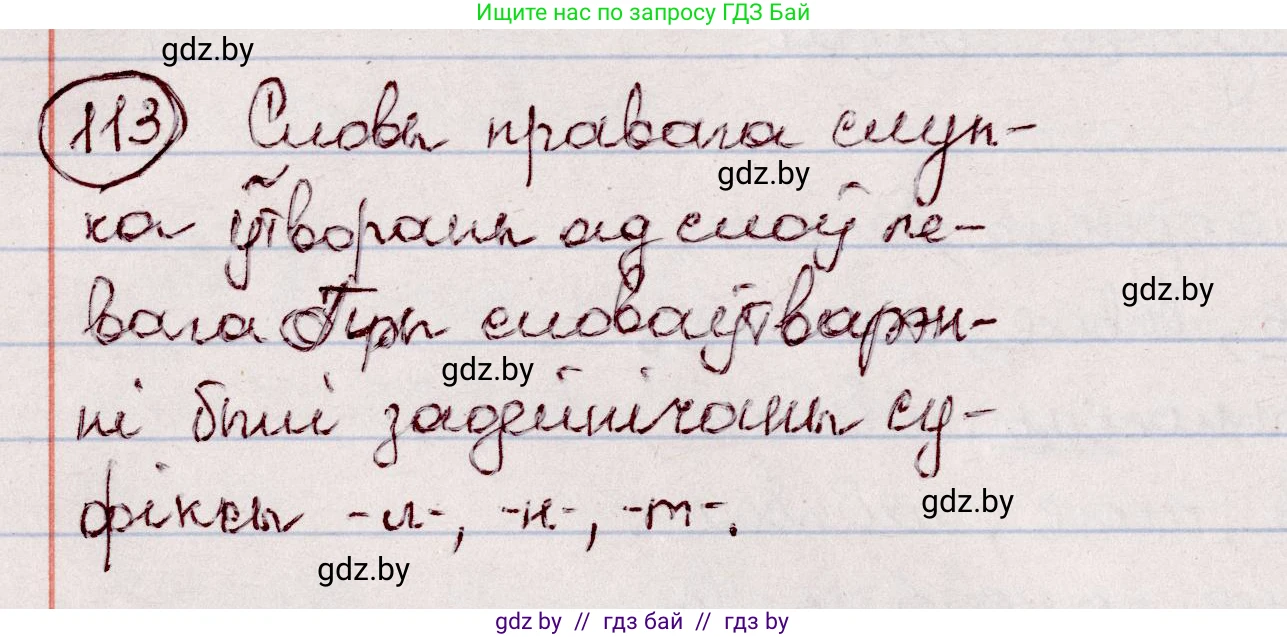 Ищите нас по запросу ГДЗ Бай
gdz.by
113 Словы правага слуп-
gdz.by
ка ўтвораны ад слоў ле-
gdz.by
вага. Пры словаўтварэн-
gdz.by
ні былі задзейнічаны су-
фіксы -л-, -н-, -т-.
gdz.by
gdz.by
gdz by // гдз бай // гдз by